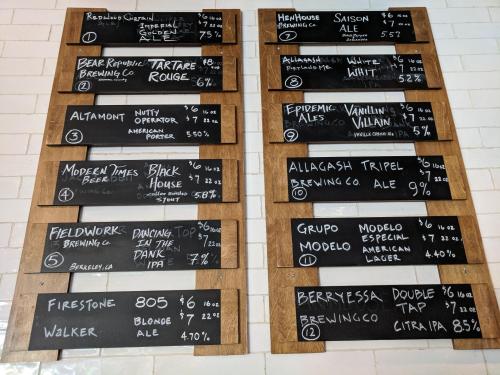 Redwood Curtain Imperial Golden Ale $6 16oz $7 22oz 7.5%
①
Bear Republic Brewing Co. Tartare Rouge $8 6%
②
Altamont Nutty Operator American Porter $6 16oz $7 22oz 5.50%
③
Modern Times Beer Black House Coffee Stout $6 16oz $7 22oz 5.8%
④
Fieldwork Brewing Co. Dancing in the Dank IPA $6 16oz $7 22oz 7%
⑤ Berkeley, CA
Firestone Walker 805 Blonde Ale $6 16oz $7 22oz 4.70%
HenHouse Brewing Co. Saison Ale $6 16oz $7
⑦
Allagash White $6 16oz $7 22oz 5.2%
Portland, ME Whit
⑧
Epidemic Ales Vanillin Villain $6 16oz $7 22oz 5%
⑨
Allagash Brewing Co. Tripel Ale $6 16oz $7 22oz 9%
⑩
Grupo Modelo Modelo Especial American Lager $6 16oz $7 22oz 4.40%
⑪
Berryessa Brewing Co Double Tap Citra IPA $6 16oz $7 22oz 85%
⑫